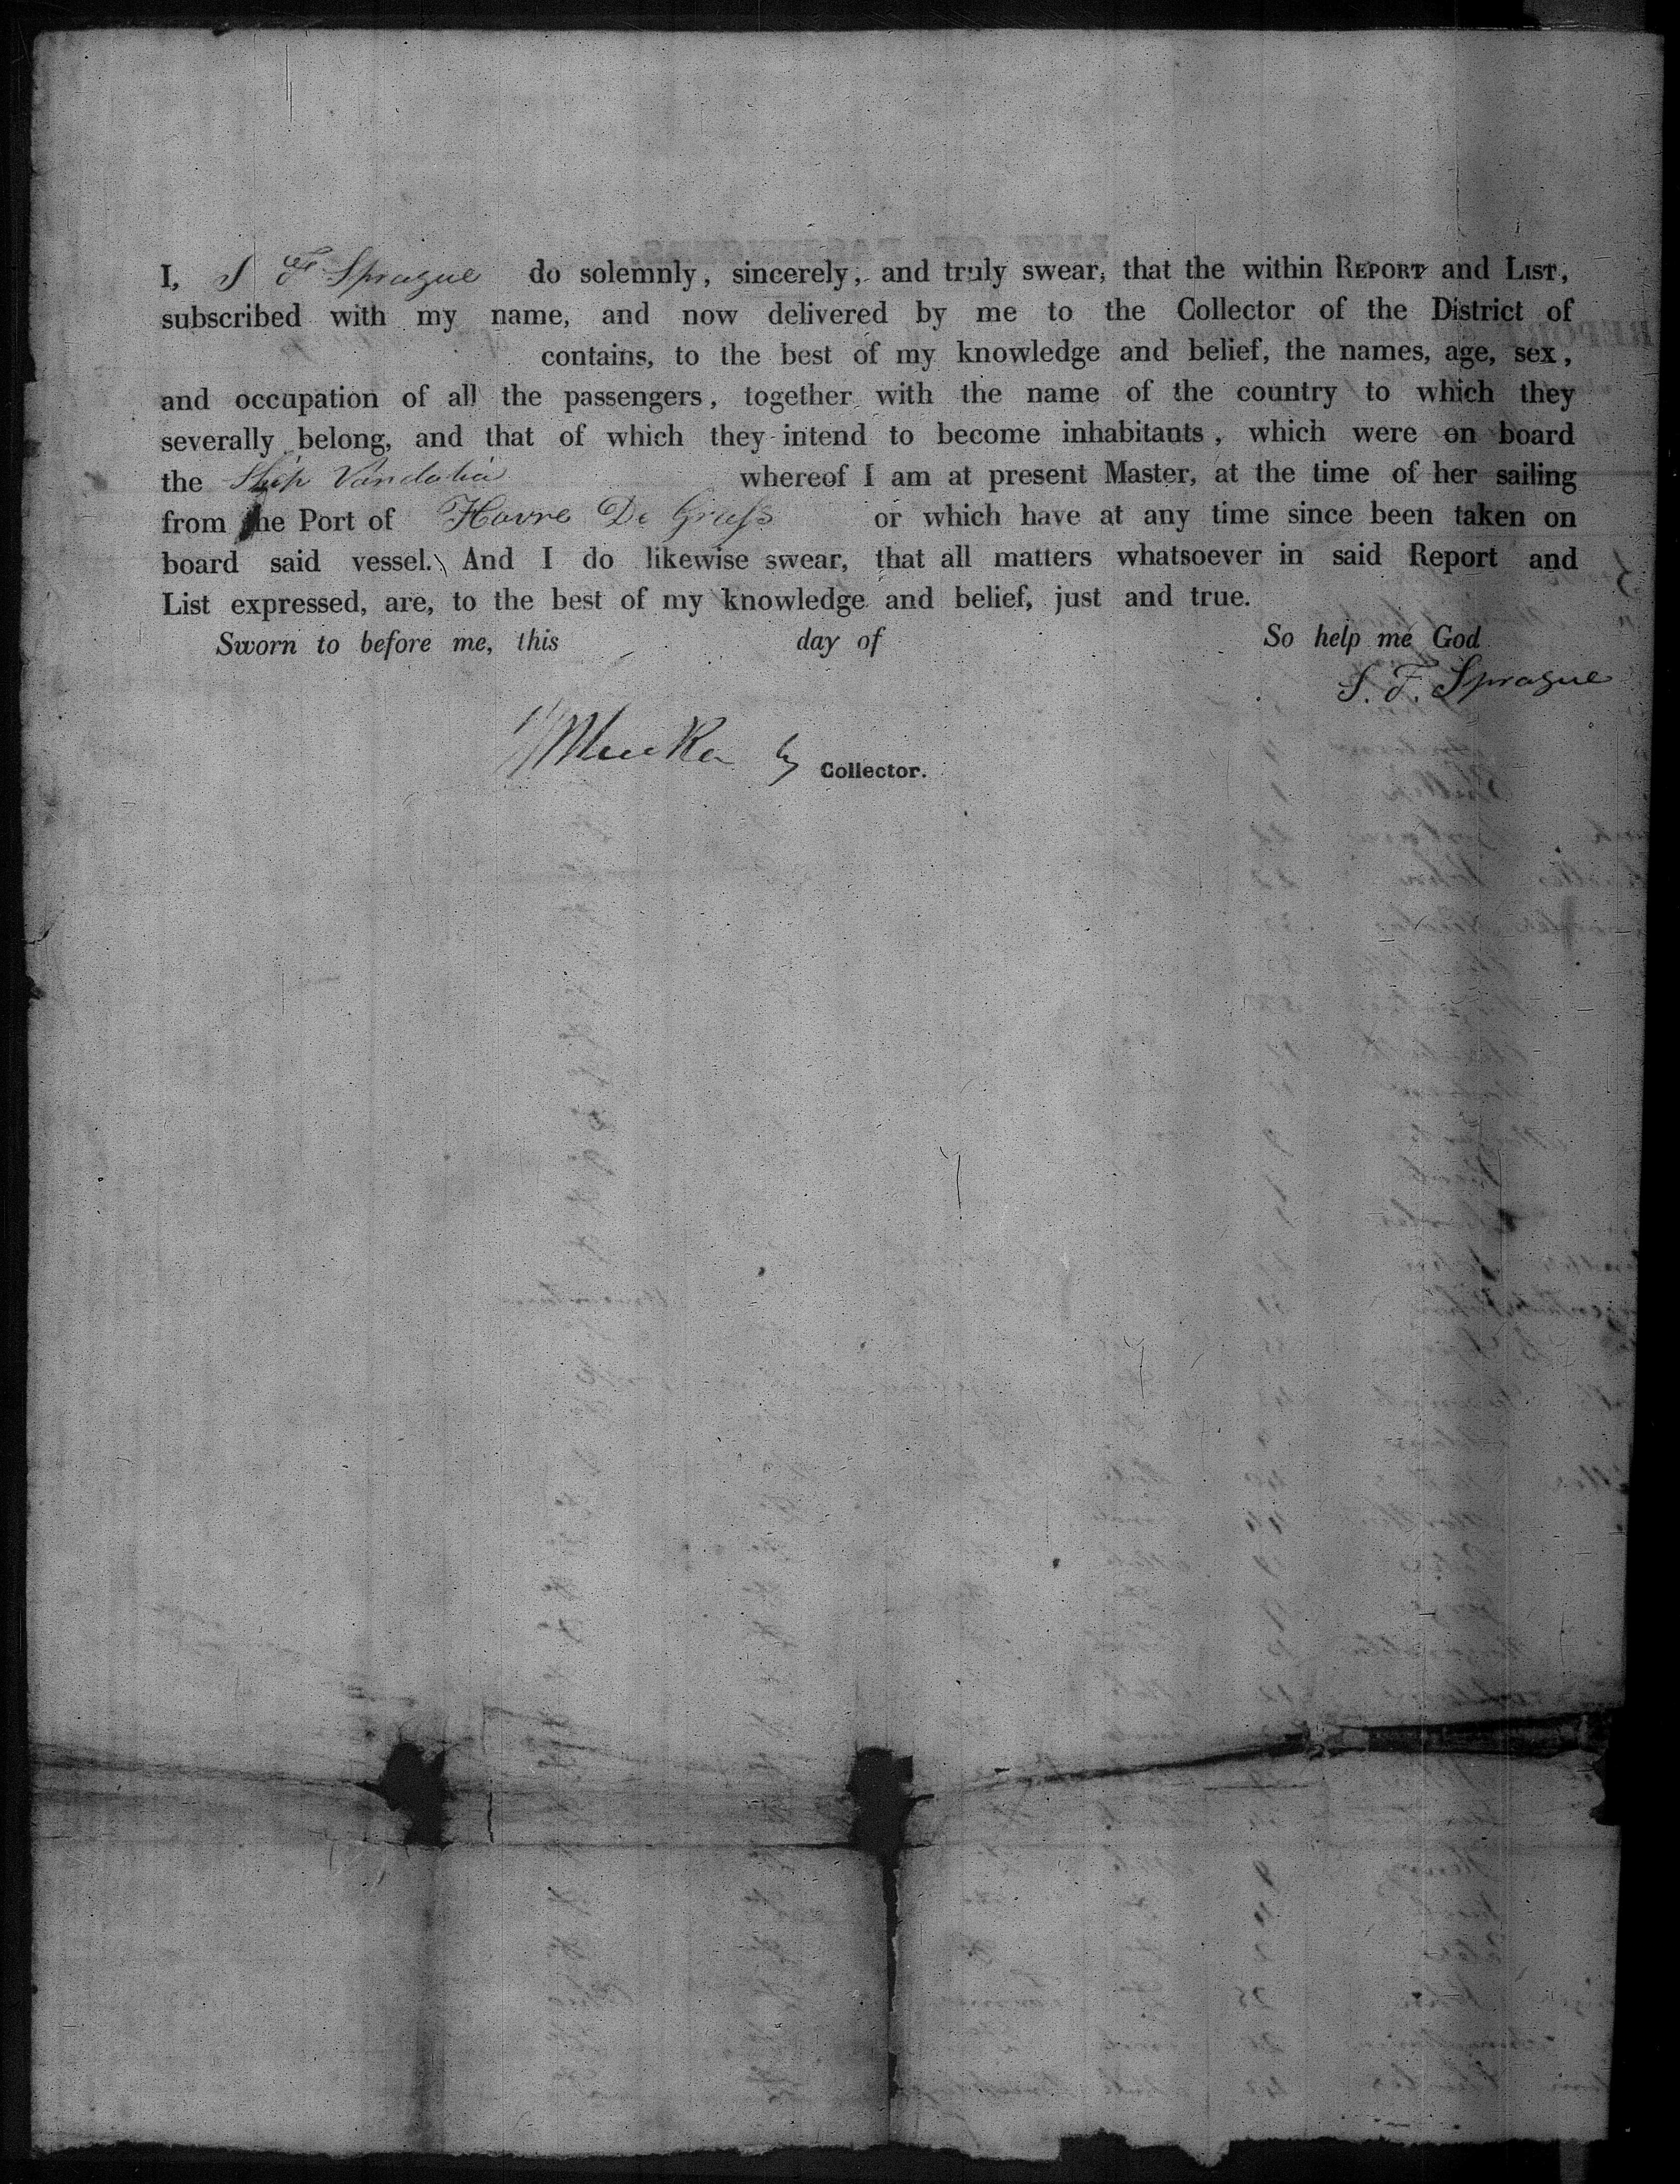 I, S F Sprague do solemnly, sincerely, and truly swear, that the within REPORT and LIST,
subscribed with my name, and now delivered by me to the Collector of the District of
contains, to the best of my knowledge and belief, the names, age, sex,
and occupation of all the passengers, together with the name of the country to which they
severally belong, and that of which they intend to become inhabitants, which were on board
the Ship Vandalia whereof I am at present Master, at the time of her sailing
from the Port of Havre De Grass or which have at any time since been taken on
board said vessel. And I do likewise swear, that all matters whatsoever in said Report and
List expressed, are, to the best of my knowledge and belief, just and true.
Sworn to before me, this day of So help me God
S. F. Sprague
Collector.